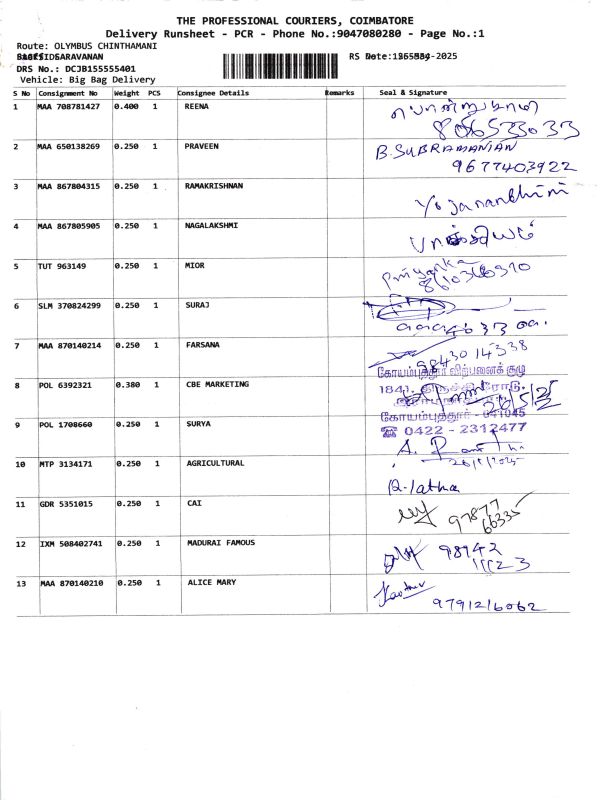 THE PROFESSIONAL COURIERS, COIMBATORE
Delivery Runsheet - PCR - Phone No.:9047080280 - Page No.:1
Route: OLYMBUS CHINTHAMANI
SARAVANAN
-2025
DRS No.: DCJB155555401
Vehicle: Big Bag Delivery
S No Consignment No Weight PCS Consignee Details Remarks Seal & Signature
1 MAA 708781427 0.400 1 REENA
8065233033
2 MAA 650138269 0.250 1 PRAVEEN B.SUBRAMANIAN
9677403922
3 MAA 867804315 0.250 1 RAMAKRISHNAN
4 MAA 867805905 0.250 1 NAGALAKSHMI
5 TUT 963149 0.250 1 MIOR Priyanka
6 SLM 370824299 0.250 1 SURAJ
7 MAA 870140214 0.250 1 FARSANA 9843014338
கோயம்புத்தூர் விற்பனைக் குழு
8 POL 6392321 0.380 1 CBE MARKETING 1841, திருச்சி ரோடு,
26/5/25
கோயம்புத்தூர் - 641045
9 POL 1708660 0.250 1 SURYA ☎ 0422 - 2312477
10 MTP 3134171 0.250 1 AGRICULTURAL 26/5/2025
R. latha
11 GDR 5351015 0.250 1 CAI 97877
66335
12 IXM 508402741 0.250 1 MADURAI FAMOUS 98942
13 MAA 870140210 0.250 1 ALICE MARY
9791216062